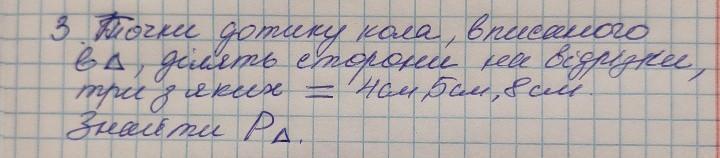 3. Точки дотику кола, вписаного
в Δ, ділять сторони на відрізки,
три з яких = 4см, 5см, 8см.
Знайти PΔ.